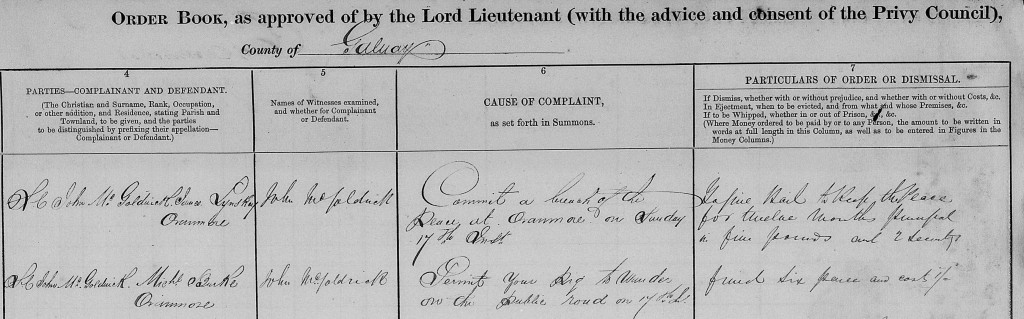 ORDER BOOK, as approved of by the Lord Lieutenant (with the advice and consent of the Privy Council),
County of Galway
4
PARTIES—COMPLAINANT AND DEFENDANT.
(The Christian and Surname, Rank, Occupation,
or other addition, and Residence, stating Parish and
Townland, to be given, and the parties
to be distinguished by prefixing their appellation—
Complainant or Defendant.)
5
Names of Witnesses examined,
and whether for Complainant
or Defendant.
6
CAUSE OF COMPLAINT,
as set forth in Summons.
7
PARTICULARS OF ORDER OR DISMISSAL.
If Dismiss, whether with or without prejudice, and whether with or without Costs, &c.
In Ejectment, when to be evicted, and from what and whose Premises, &c.
If to be Whipped, whether in or out of Prison, &c., &c.
(Where Money ordered to be paid by or to any Person, the amount to be written in
words at full length in this Column, as well as to be entered in Figures in the
Money Columns.)
John Mc Goldrick. Lynskey
Oranmore
John McGoldrick
Commit a breach of the
Peace at Oranmore on Sunday
17th Inst
To give Bail to Keep the Peace
for twelve Months Principal
in five pounds and 2 Security
John Mc Goldrick. Michl Burke
Oranmore
John McGoldrick
Permit your Pig to wander
on the public road on 17th
fined six pence and costs